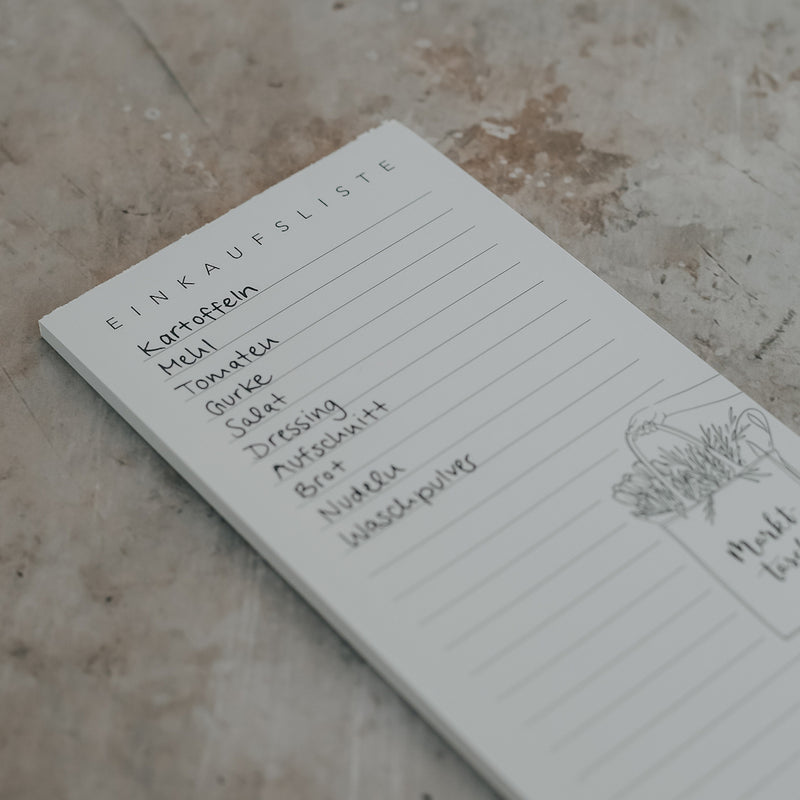 EINKAUFSLISTE
Kartoffeln
Mehl
Tomaten
Gurke
Salat
Dressing
Aufschnitt
Brot
Nudeln
Waschpulver
Markt-